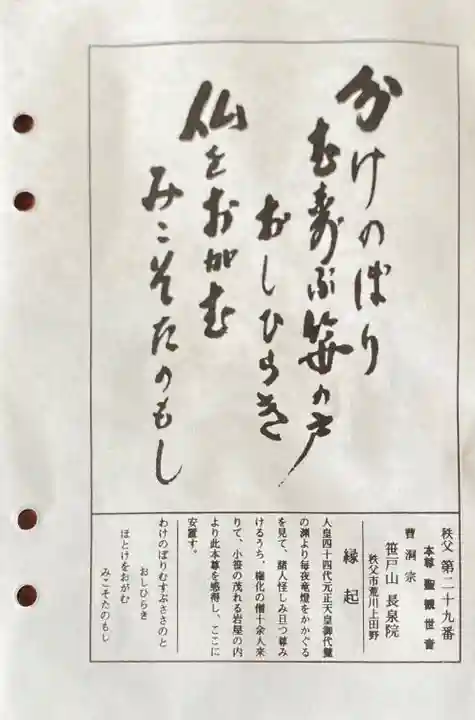 分けのぼり
むすぶ笹の戸
おしひらき
仏をおがむ
みこそたのもし
秩父 第二十九番
本尊 聖観世音
曹洞宗
笹戸山 長泉院
秩父市荒川上田野
縁起
人皇四十四代元正天皇御代龍
の渕より毎夜竜燈をかかぐる
を見て、諸人怪しみ且つ尊み
けるうち、権化の僧十余人来
りて、小笹の茂れる岩屋の内
より此本尊を感得し、ここに
安置す。
わけのぼりむすぶささのと
おしひらき
ほとけをおがむ
みこそたのもし